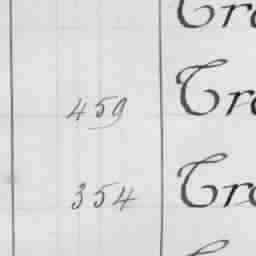 Tra
459 Tra
354 Tra